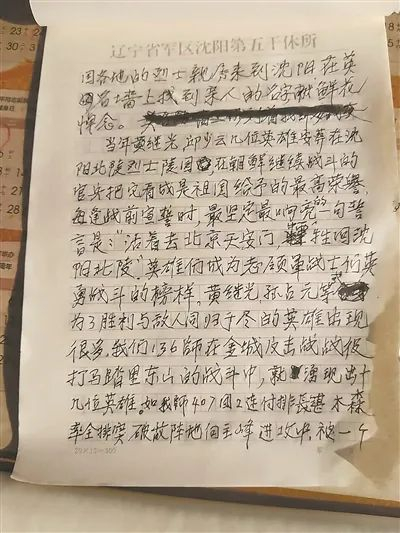 辽宁省军区沈阳第五干休所
国各地的烈士亲居来到沈阳在英
名墙上找到亲人的名字献鲜花
悼念。
当年黄继光、邱少云几位英雄安葬在沈
阳北陵烈士陵园，在朝鲜继续战斗的
官兵把它看成是祖国给予的最高荣誉，
每逢战前宣誓时，最坚定最响亮的一句誓
言是：“活着去北京天安门，牺牲回沈
阳北陵”英雄们成为志愿军战士们英
勇战斗的榜样，黄继光、孙占元等
为了胜利与敌人同归于尽的英雄出现
很多，我们136师在金城攻击战战役
打马踏里东山的战斗中，就涌现出十
几位英雄。如我师407团2连付排长湛木森
率全排突破敌阵地向主峰进攻中，被一个
20×15=300